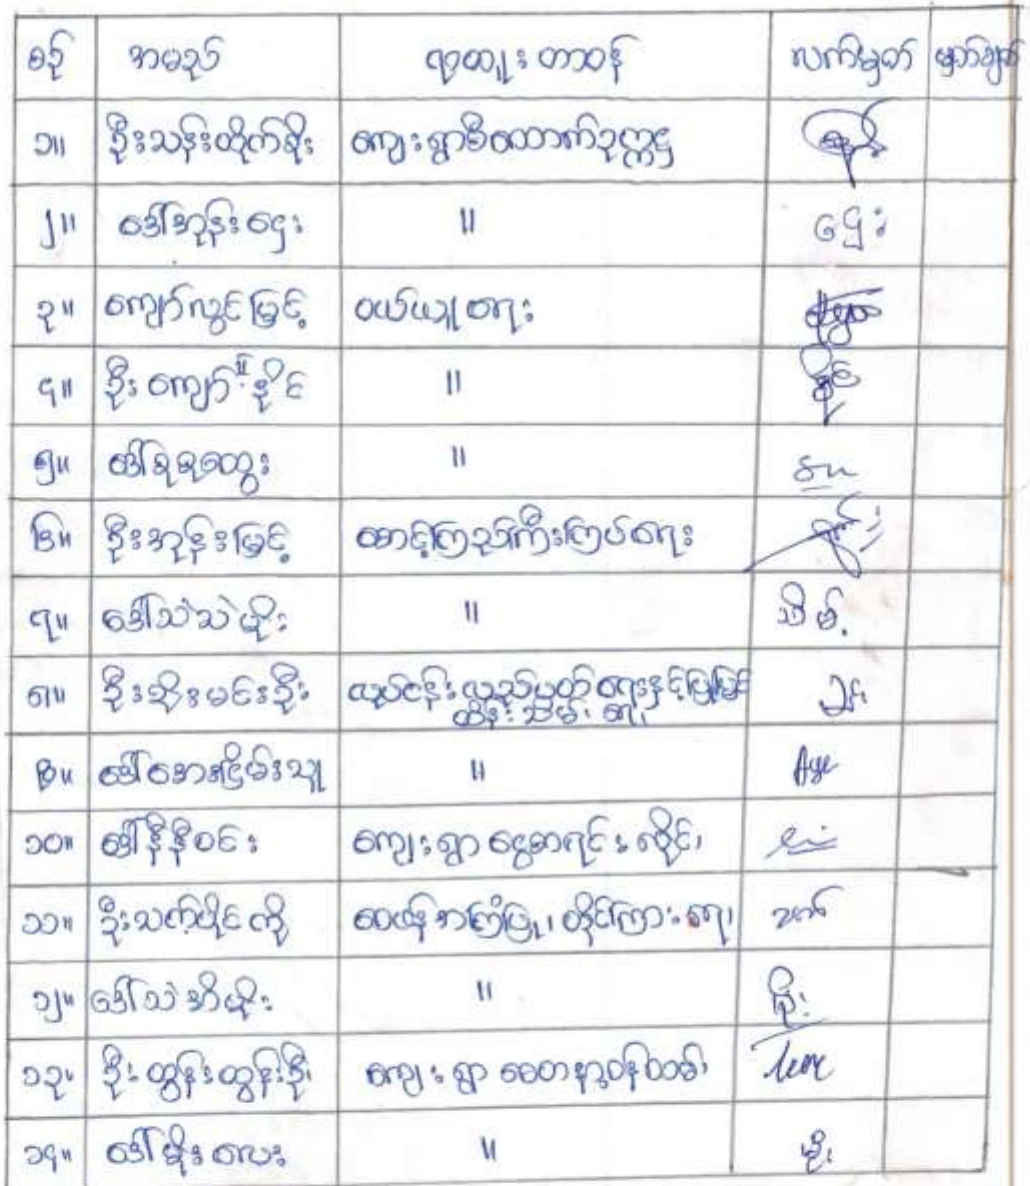 စဉ် အမည် ရာထူး တာဝန် လက်မှတ် မှတ်ချက်
၁။ ဦးသန်းထိုက်စိုး ကျေးရွာစီထောက်ဥက္ကဋ္ဌ
၂။ ဒေါ်အုန်းဌေး " ဌေး
၃။ ကျော်လွင်မြင့် ဝယ်ယူရေး
၄။ ဦးကျော်နိုင် " နိုင်
၅။ ဒေါ်ခိုခိုထွေး "
၆။ ဦးအုန်းမြင့် စောင့်ကြည့်ကြီးကြပ်ရေး
၇။ ဒေါ်သဲသဲဖိုး "
၈။ ဦးသိုးမင်းဦး လုပ်ငန်းလည်ပတ်ရေးနှင့်ပြုပြင်
ထိန်းသိမ်းရေး
၉။ ဒေါ်အေးငြိမ်းသူ " Aye
၁၀။ ဒေါ်နီနီဝင်း ကျေးရွာ ငွေစာရင်း
၁၁။ ဦးသက်ပိုင်ကို ဝေဖန်အကြံပြု၊ တိုင်ကြားရေး
၁၂။ ဒေါ်သဲအိဖိုး " ဖိုး
၁၃။ ဦးထွန်းထွန်းဦး ကျေးရွာ စေတနာ့ဝန်ထမ်း
၁၄။ ဒေါ်မိုးလေး " မိုး